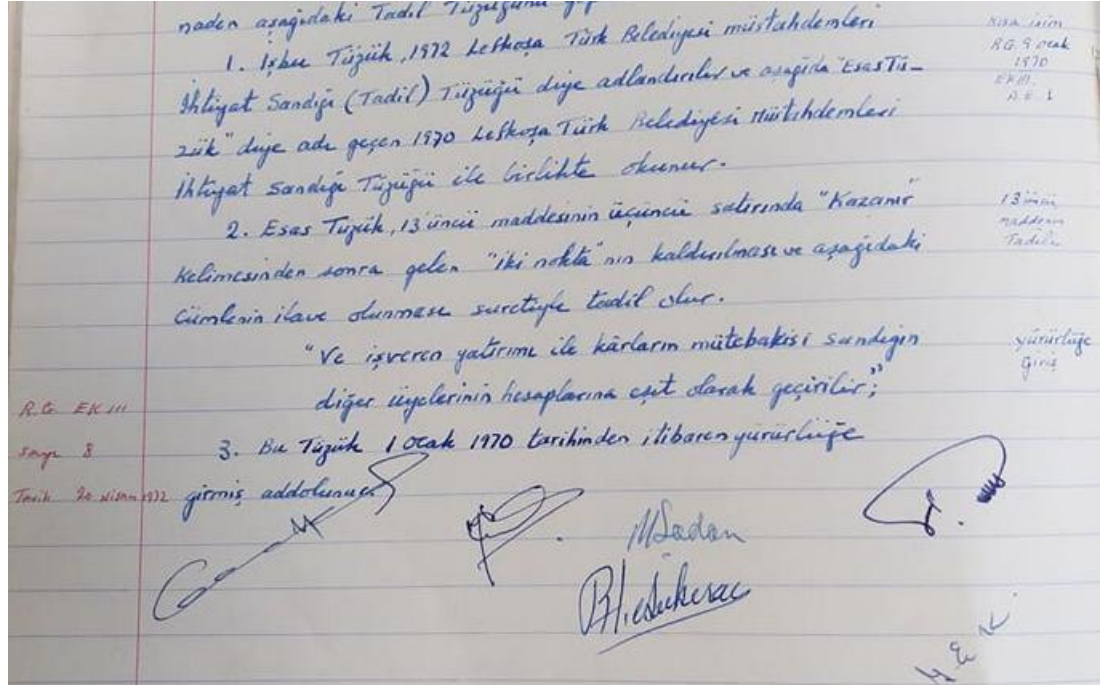 naden aşağıdaki Tadil Tüzüğünü
1. İşbu Tüzük, 1972 Lefkoşa Türk Belediyesi müstahdemleri
İhtiyat Sandığı (Tadil) Tüzüğü diye adlandırılır ve aşağıda "Esas Tü-
zük" diye adı geçen 1970 Lefkoşa Türk Belediyesi Müstahdemleri
İhtiyat Sandığı Tüzüğü ile birlikte okunur.
Kısa isim
R.G. 9 ocak
1970
EK III.
A.E. 1
2. Esas Tüzük, 13 üncü maddesinin üçüncü satırında "Kazanır"
Kelimesinden sonra gelen "iki nokta" nın kaldırılması ve aşağıdaki
Cümlenin ilave olunması suretiyle tadil olur.
13 üncü
maddenin
Tadili
"Ve işveren yatırımı ile kârların mütebakisi sandığın
diğer üyelerinin hesaplarına eşit olarak geçirilir;"
3. Bu Tüzük 1 Ocak 1970 tarihinden itibaren yürürlüğe
girmiş addolunur.
yürürlüğe
Giriş
R.G. EK III
Sayı 8
Tarih 20 Nisan 1972